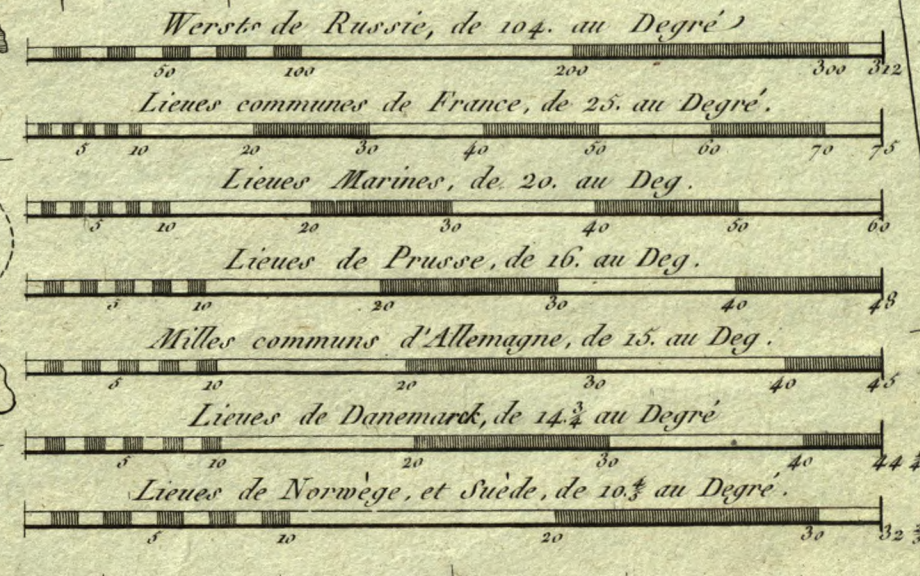 Wersts de Russie, de 104. au Degré
50 100 200 300 312
Lieues communes de France, de 25. au Degré.
5 10 20 30 40 50 60 70 75
Lieues Marines, de 20. au Deg.
5 10 20 30 40 50 60
Lieues de Prusse, de 16. au Deg.
5 10 20 30 40 48
Milles communs d'Allemagne, de 15. au Deg.
5 10 20 30 40 45
Lieues de Danemarck, de 14.¾ au Degré
5 10 20 30 40 44
Lieues de Norwège, et Suède, de 10. au Degré.
5 10 20 30 32